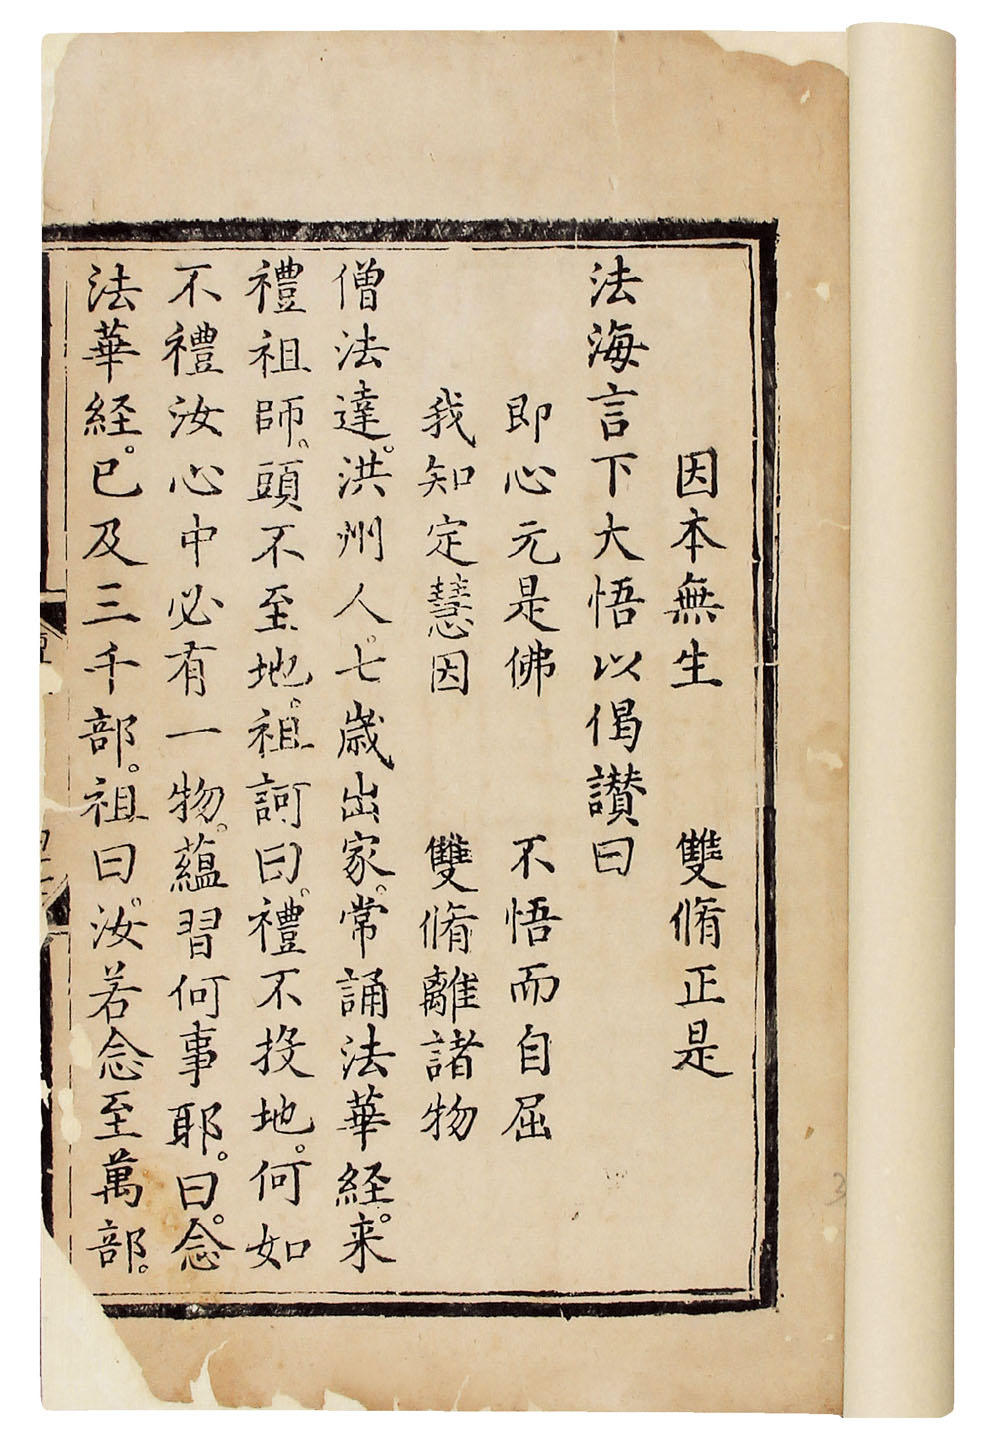 因本無生　雙脩正是
法海言下大悟以偈讃曰
即心元是佛　不悟而自屈
我知定慧因　雙脩離諸物
僧法達。洪州人。七歳出家。常誦法華経。来
禮祖師。頭不至地。祖訶曰。禮不投地。何如
不禮汝心中必有一物。蘊習何事耶。曰。念
法華経。已及三千部。祖曰。汝若念至萬部。